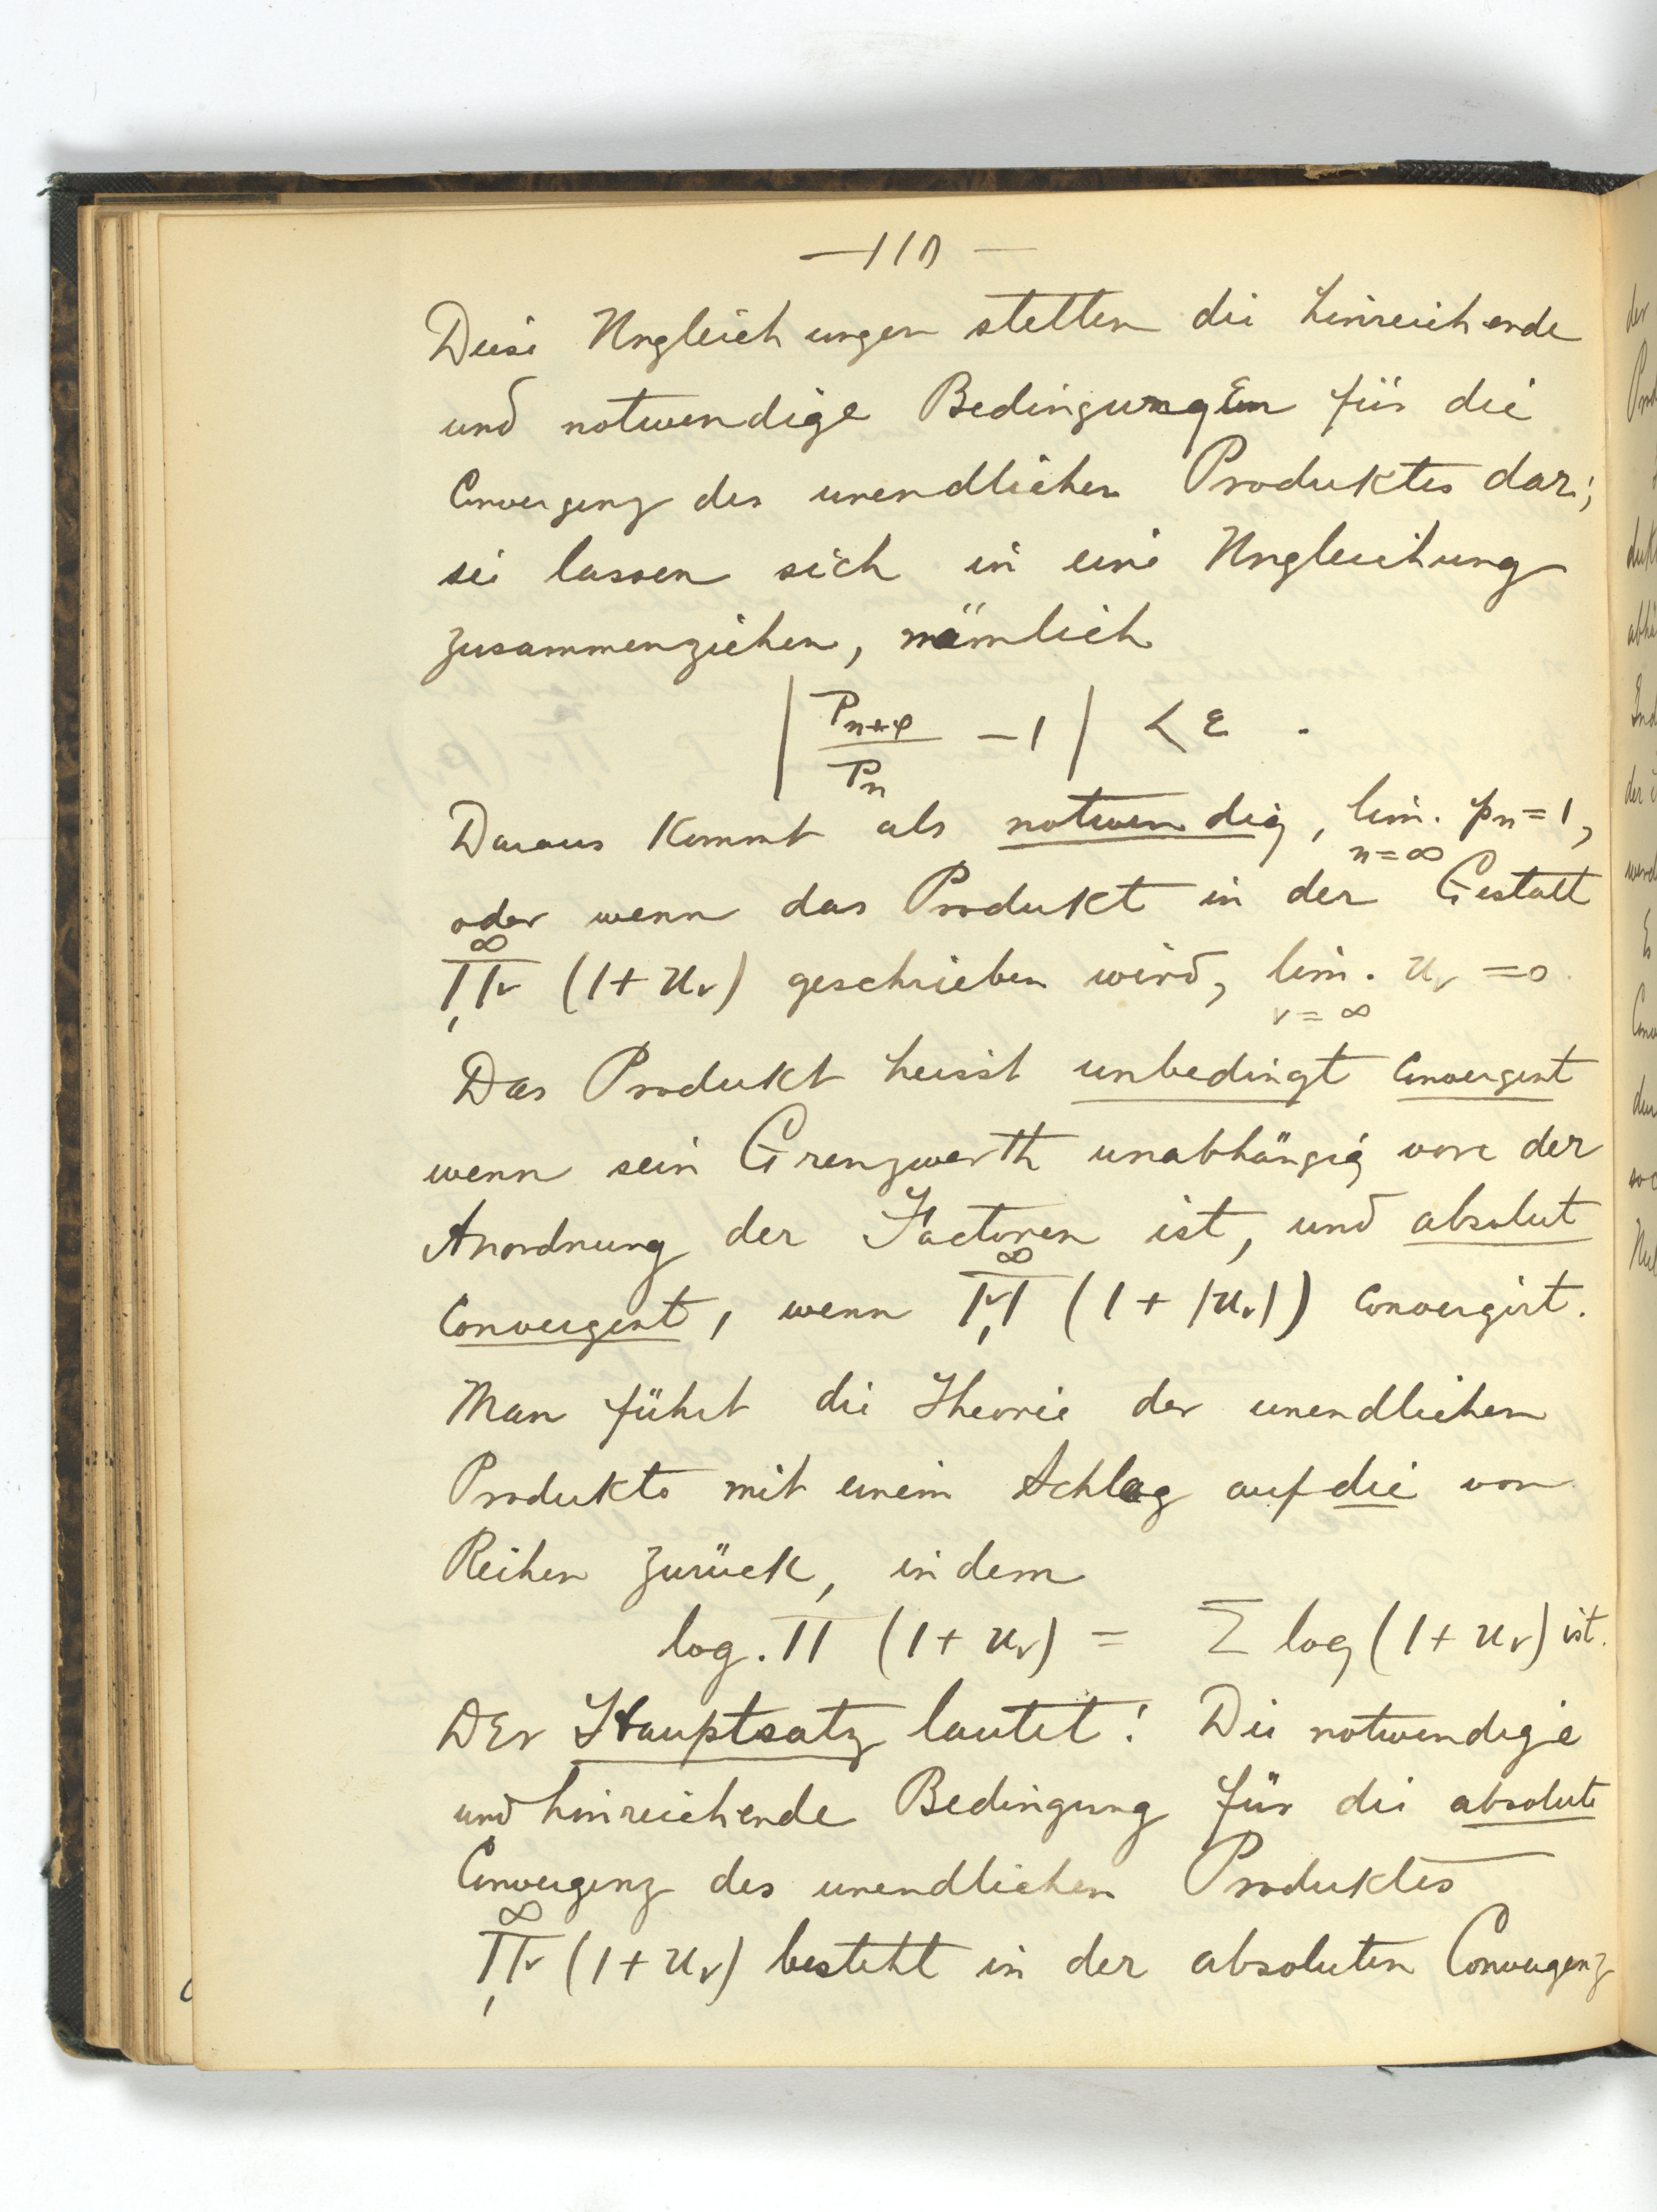 — 110 —
Diese Ungleichungen stellen die hinreichende
und notwendige Bedingungen für die
Convergenz des unendlichen Produktes dar;
sie lassen sich in eine Ungleichung
zusammenziehen, nämlich
| P_{n+φ} / P_n − 1 | < ε .
Daraus kommt als notwendig, lim. p_n = 1,
n = ∞
oder wenn das Produkt in der Gestalt
∞
Π_ν (1 + u_ν) geschrieben wird, lim. u_ν = 0
1
ν = ∞
Das Produkt heisst unbedingt convergent
wenn sein Grenzwerth unabhängig von der
Anordnung der Factoren ist, und absolut
∞
convergent, wenn Π_ν (1 + |u_ν|) convergirt.
1
Man führt die Theorie der unendlichen
Produkte mit einem Schlag auf die von
Reihen zurück, indem
log. Π (1 + u_ν) = Σ log (1 + u_ν) ist.
Der Hauptsatz lautet: Die notwendige
und hinreichende Bedingung für die absolute
Convergenz des unendlichen Produktes
∞
Π_ν (1 + u_ν) besteht in der absoluten Convergenz
1